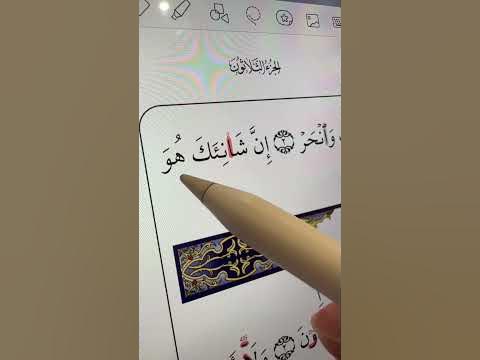 الجزء الثلاثون
وَٱنْحَرْ ٢ إِنَّ شَانِئَكَ هُوَ